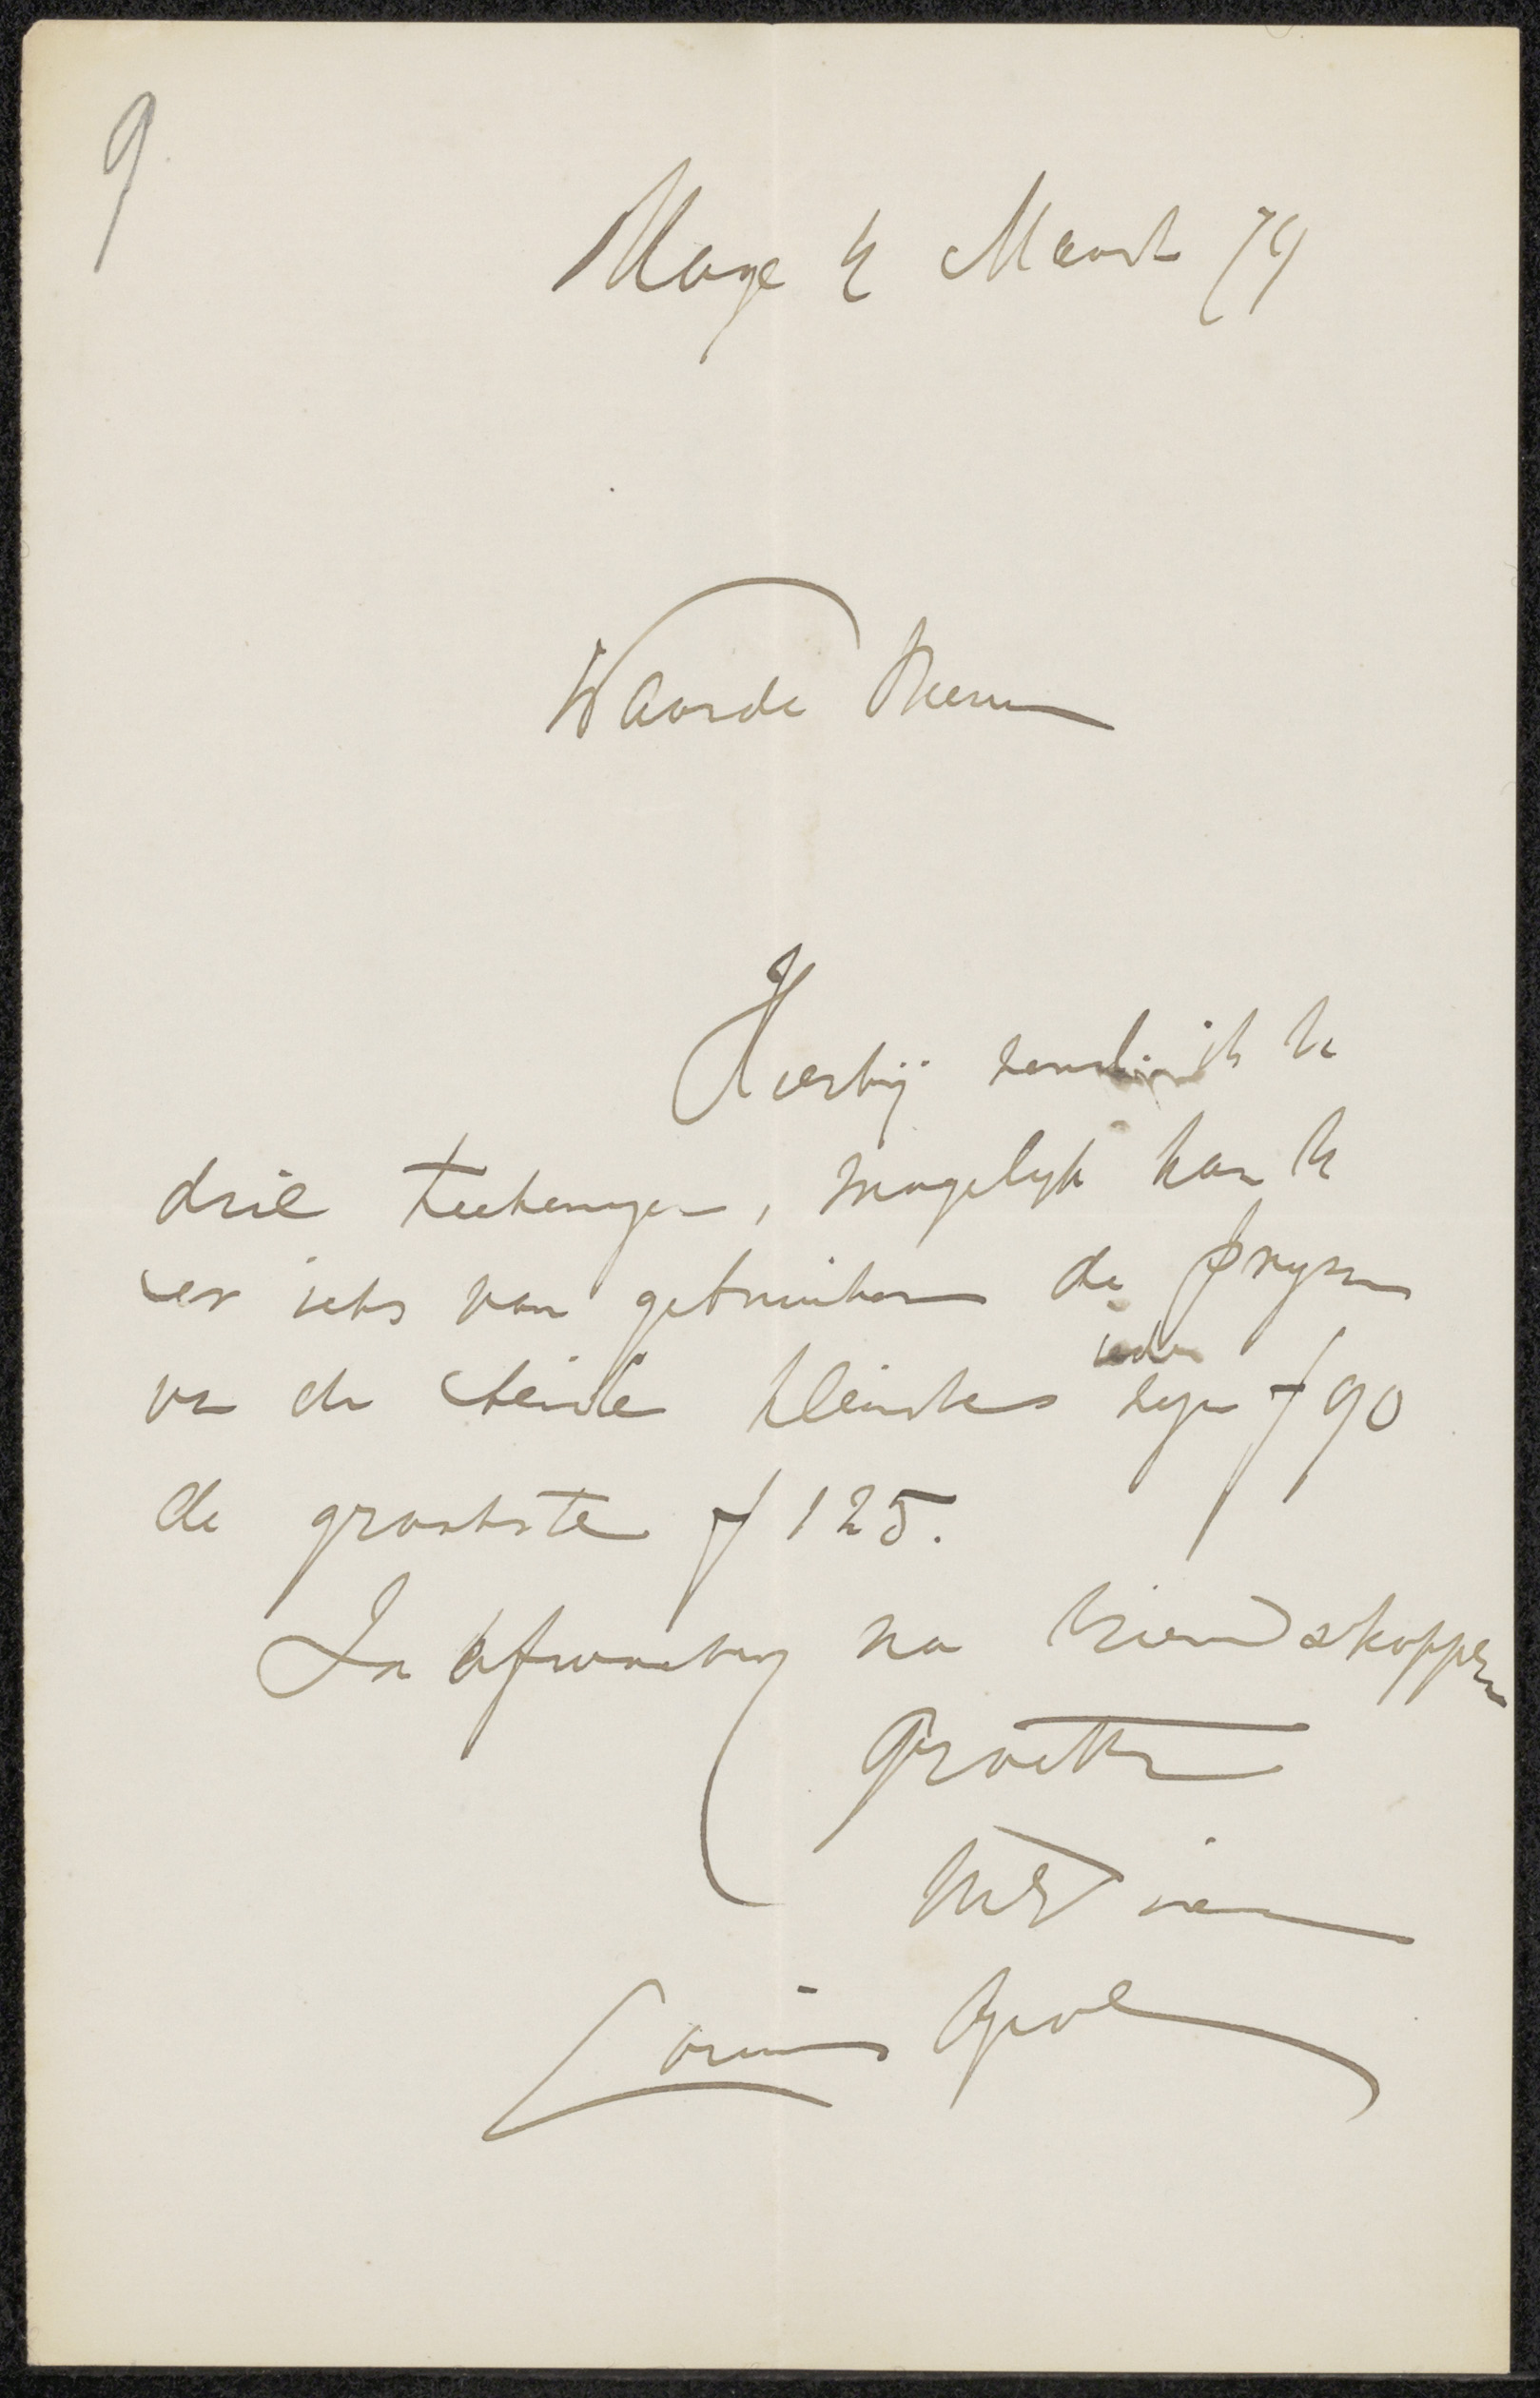 9
Hage 4 Maart 79
Waarde Heeren
Hierbij zend ik U
drie teekeningen, mogelijk kan U
er iets van gebruiken de prijzen
van de beide kleinste ieder zijn f 90
de grootste f 125.
In afwachting na vriendschappel
Groeten
Louis Apol